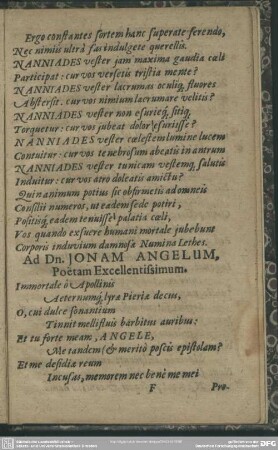 Ergo constantes sortem hanc superate ferendo,
Nec nimius ultrà fas indulgete querellis.
NANNIADES vester jam maxima gaudia cæli
Participat: cur vos versetis tristia mente?
NANNIADES vester lacrumas oculiq; fluores
Abstersit. cur vos nimium lacrumare velitis?
NANNIADES vester non esurieq; sitiq;
Torquetur: cur vos jubeat dolor esuriisse?
NANNIADES vester cælestem lumine lucem
Contuitur: cur vos tenebrosum abeatis in antrum
NANNIADES vester tunicam vestemq; salutis
Induitur: cur vos atro doleatis amictu?
Quin animum potius sic obfirmetis ad omneis
Consilii numeros, ut eadem sede potiri,
Positiq; eadem tenuisse palatia cæli,
Vos quando exsuere humani mortale jubebunt
Corporis induvium damnosa Numina Lethes.
Ad Dn. JONAM ANGELUM,
Poëtam Excellentissimum.
Immortale ô Apollinis
Aeternumq; lyræ Pieriæ decus,
O, cui dulce sonantium
Tinnit mellifluis barbitus auribus:
Et tu forte meam, ANGELE,
Me tandem (& meritò poscis epistolam?
Et me desidiæ reum
Incusas, memorem nec benè me mei
F
Pro-